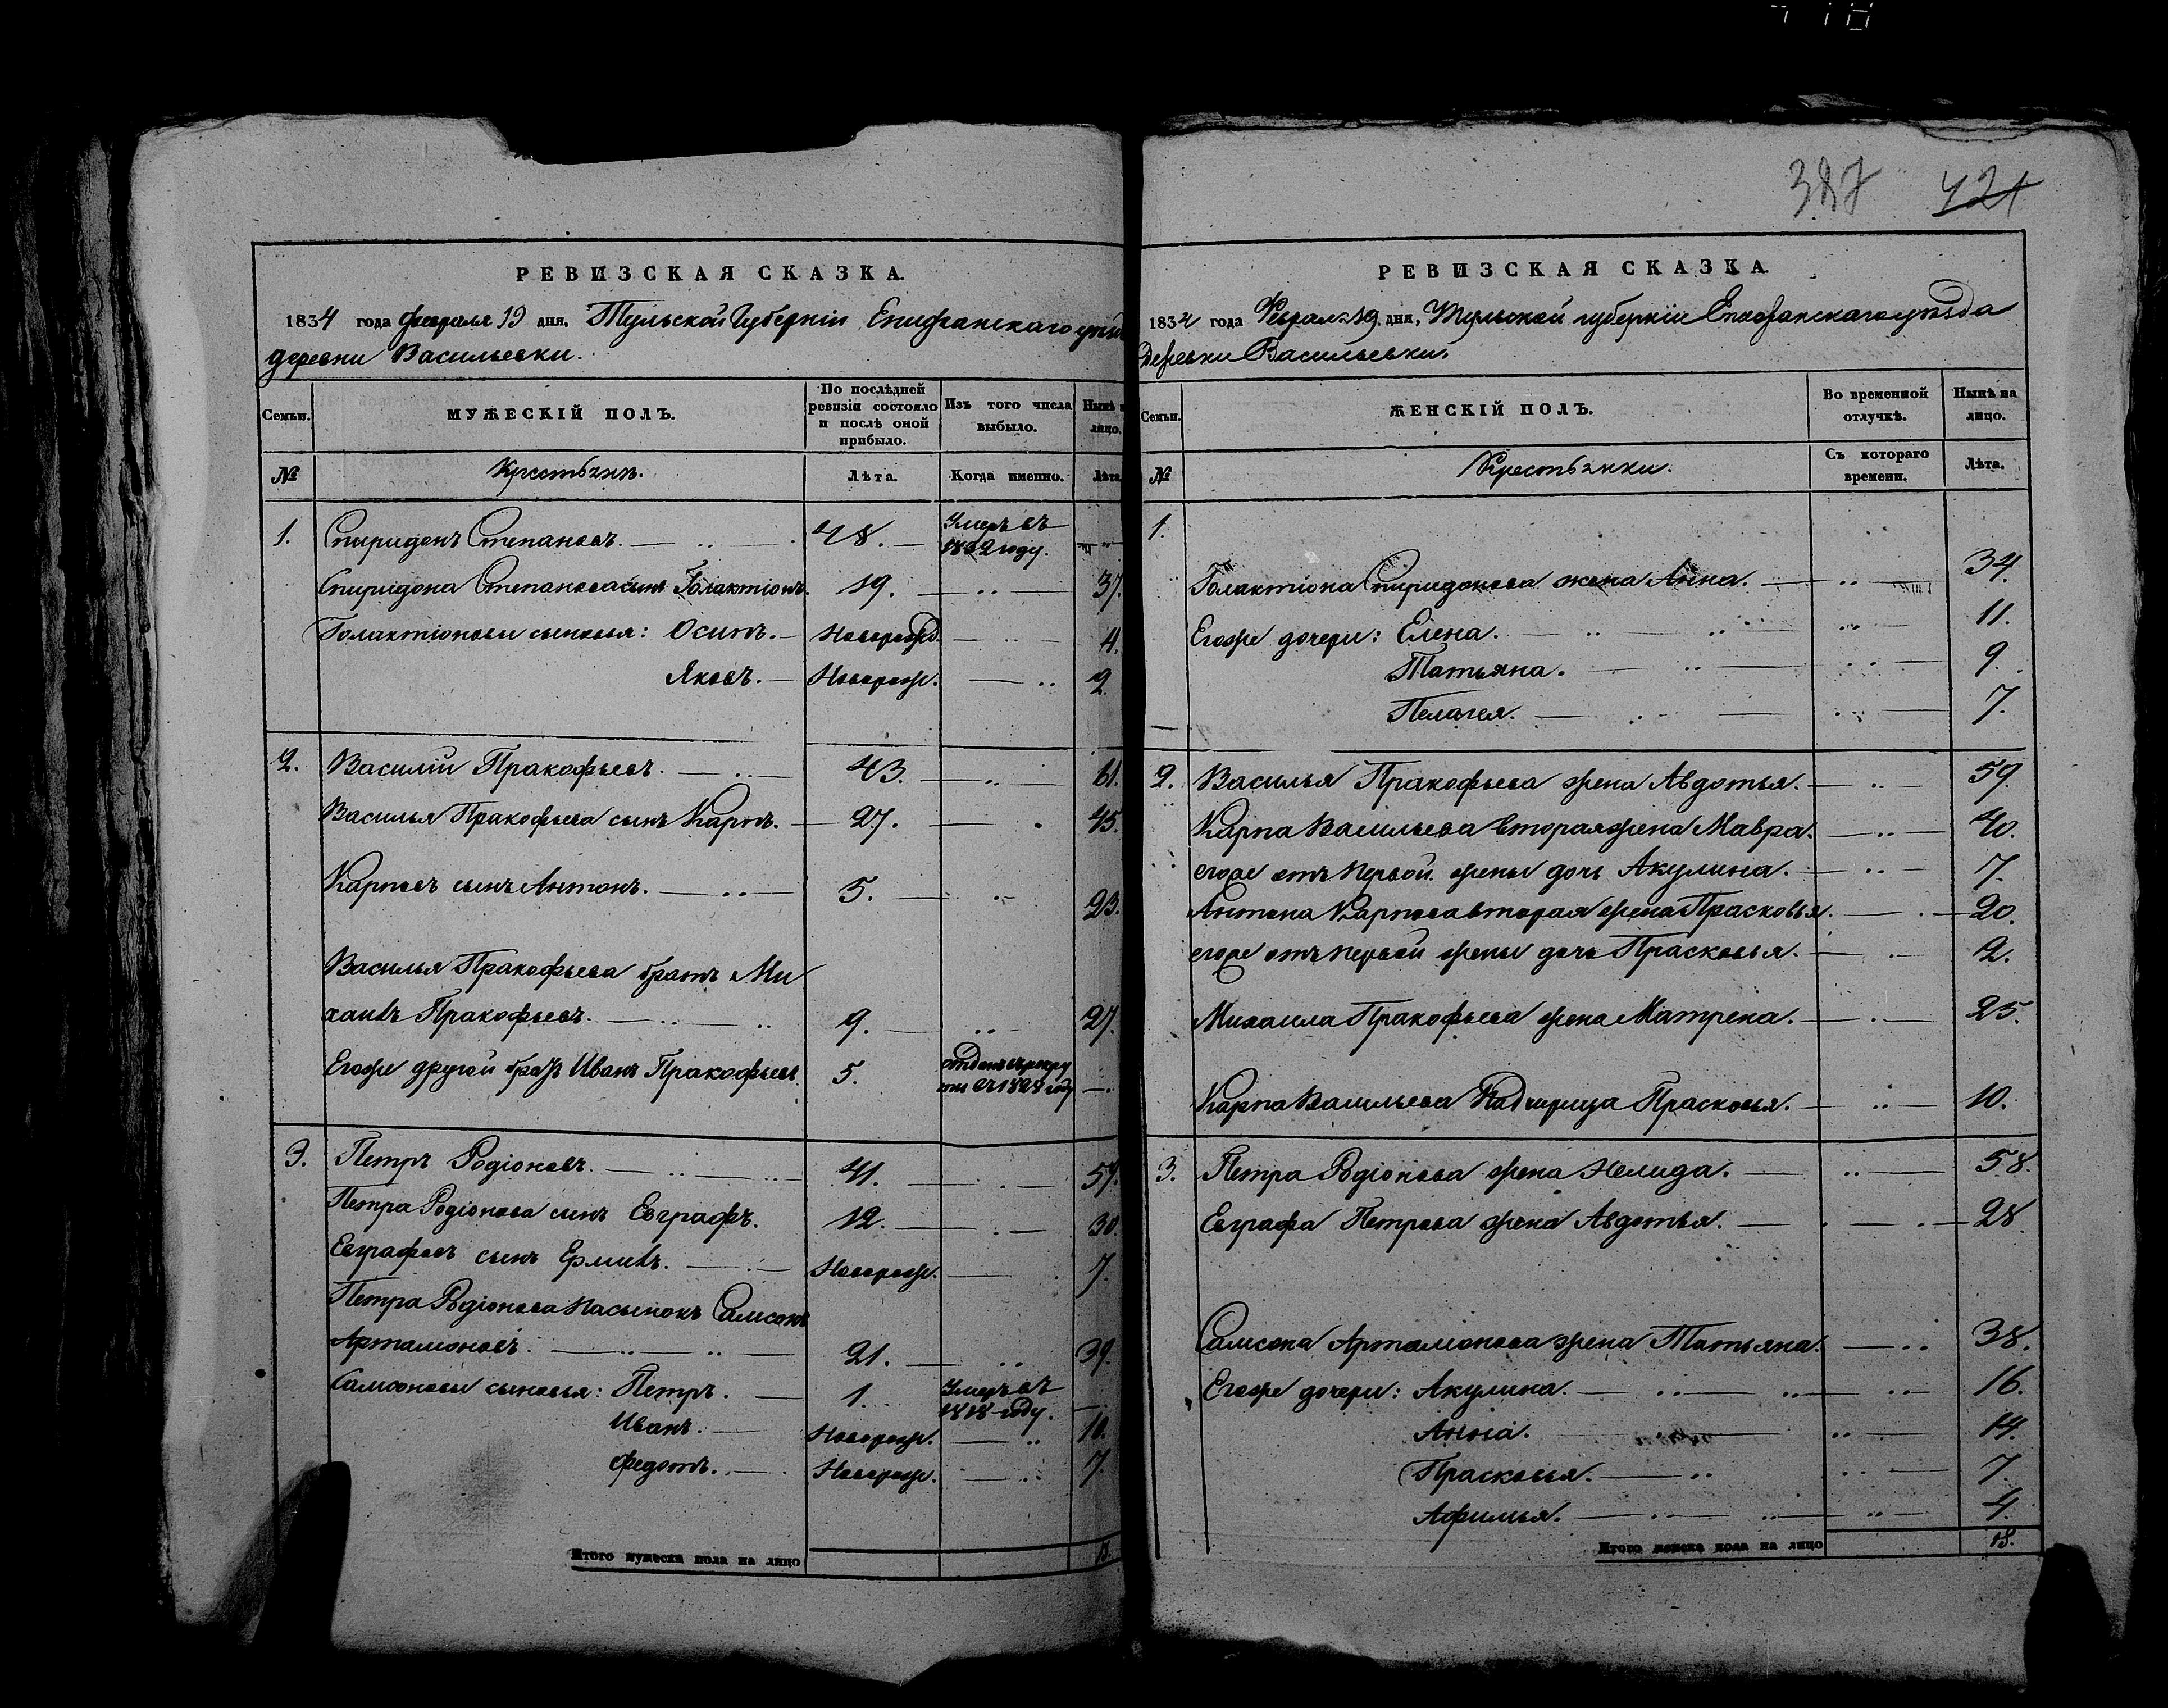 387 421
РЕВИЗСКАЯ СКАЗКА.
1834 года февраля 19 дня, Тульской Губерніи Епифанскаго
деревни Васильевки.
Семьи. МУЖЕСКІЙ ПОЛЪ. По послѣдней ревизіи состояло и послѣ оной прибыло. Изъ того числа выбыло. Нынѣ лицо.
№ Крестьянъ. Лѣта. Когда именно. Лѣта
1. Спиридонъ Степановъ. 48. Умеръ въ
году.
Спиридона Степанова сынъ Голактіонъ. 19. 37.
Голактіоновы сыновья: Осипъ. Новорожд. 4.
Яковъ. Новорож. 2.
2. Василій Пракофьевъ. 43. 61.
Василья Пракофьева сынъ Карпъ. 27. 45.
Карповъ сынъ Антонъ. 5. 23.
Василья Пракофьева братъ Ми
хаилъ Пракофьевъ. 9. 27.
Егоже другой братъ Иванъ Пракофьевъ 5. отданъ въ рекру
ты въ году
3. Петръ Родіоновъ. 41. 57.
Петра Родіонова сынъ Евграфъ. 12. 30.
Евграфовъ сынъ Ермилъ. Новорож. 7.
Петра Родіонова Пасынокъ Самсонъ
Артамоновъ. 21. 39.
Самсоновы сыновья: Петръ. 1. Умеръ въ
1818 году.
Иванъ. Новорож. 10.
Федотъ. Новорож. 7.
Итого мужеска пола на лицо
РЕВИЗСКАЯ СКАЗКА.
1834 года Февраля 19 дня, Тульской губерніи Епифанскаго уѣзда
деревни Васильевки.
Семьи. ЖЕНСКІЙ ПОЛЪ. Во временной отлучкѣ. Нынѣ на лицо.
№ Крестьянки. Съ котораго времени. Лѣта.
1.
Голактіона Спиридонова жена Анна. 34.
Егоже дочери: Елена. 11.
Татьяна. 9.
Пелагея. 7.
2. Василья Пракофьева жена Авдотья. 59.
Карпа Васильева вторая жена Мавра. 40.
егоже отъ первой жены дочь Акулина. 7.
Антона Карпова вторая жена Прасковья. 20.
егоже отъ первой жены дочь Прасковья. 2.
Михаила Пракофьева жена Матрена. 25.
Карпа Васильева Падчирица Прасковья. 10.
3. Петра Родіонова жена Нелида. 58.
Евграфа Петрова жена Авдотья. 28
Самсона Артамонова жена Татьяна. 38.
Егоже дочери: Акулина. 16.
Анна. 14.
Прасковья. 7
Афимья. 4.
Итого женска пола на лицо 18.